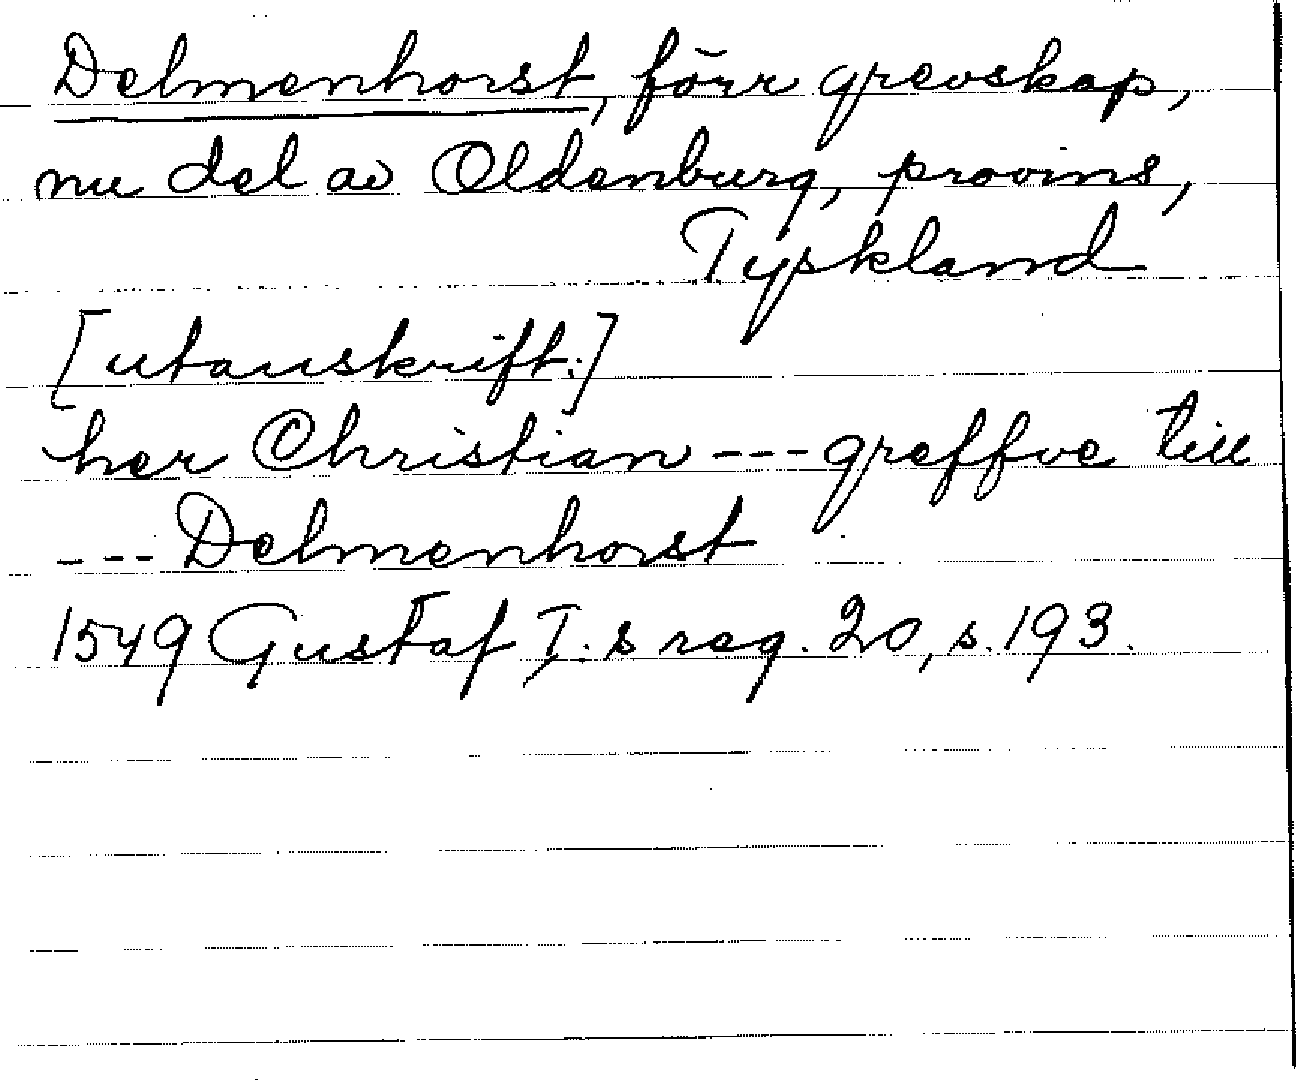 Delmenhorst, förr grevskap,
nu del av Oldenburg, provins,
Tyskland
[utanskrift:]
her Christian --- greffve till
--- Delmenhorst
1549 Gustaf I:s reg. 20, s. 193.